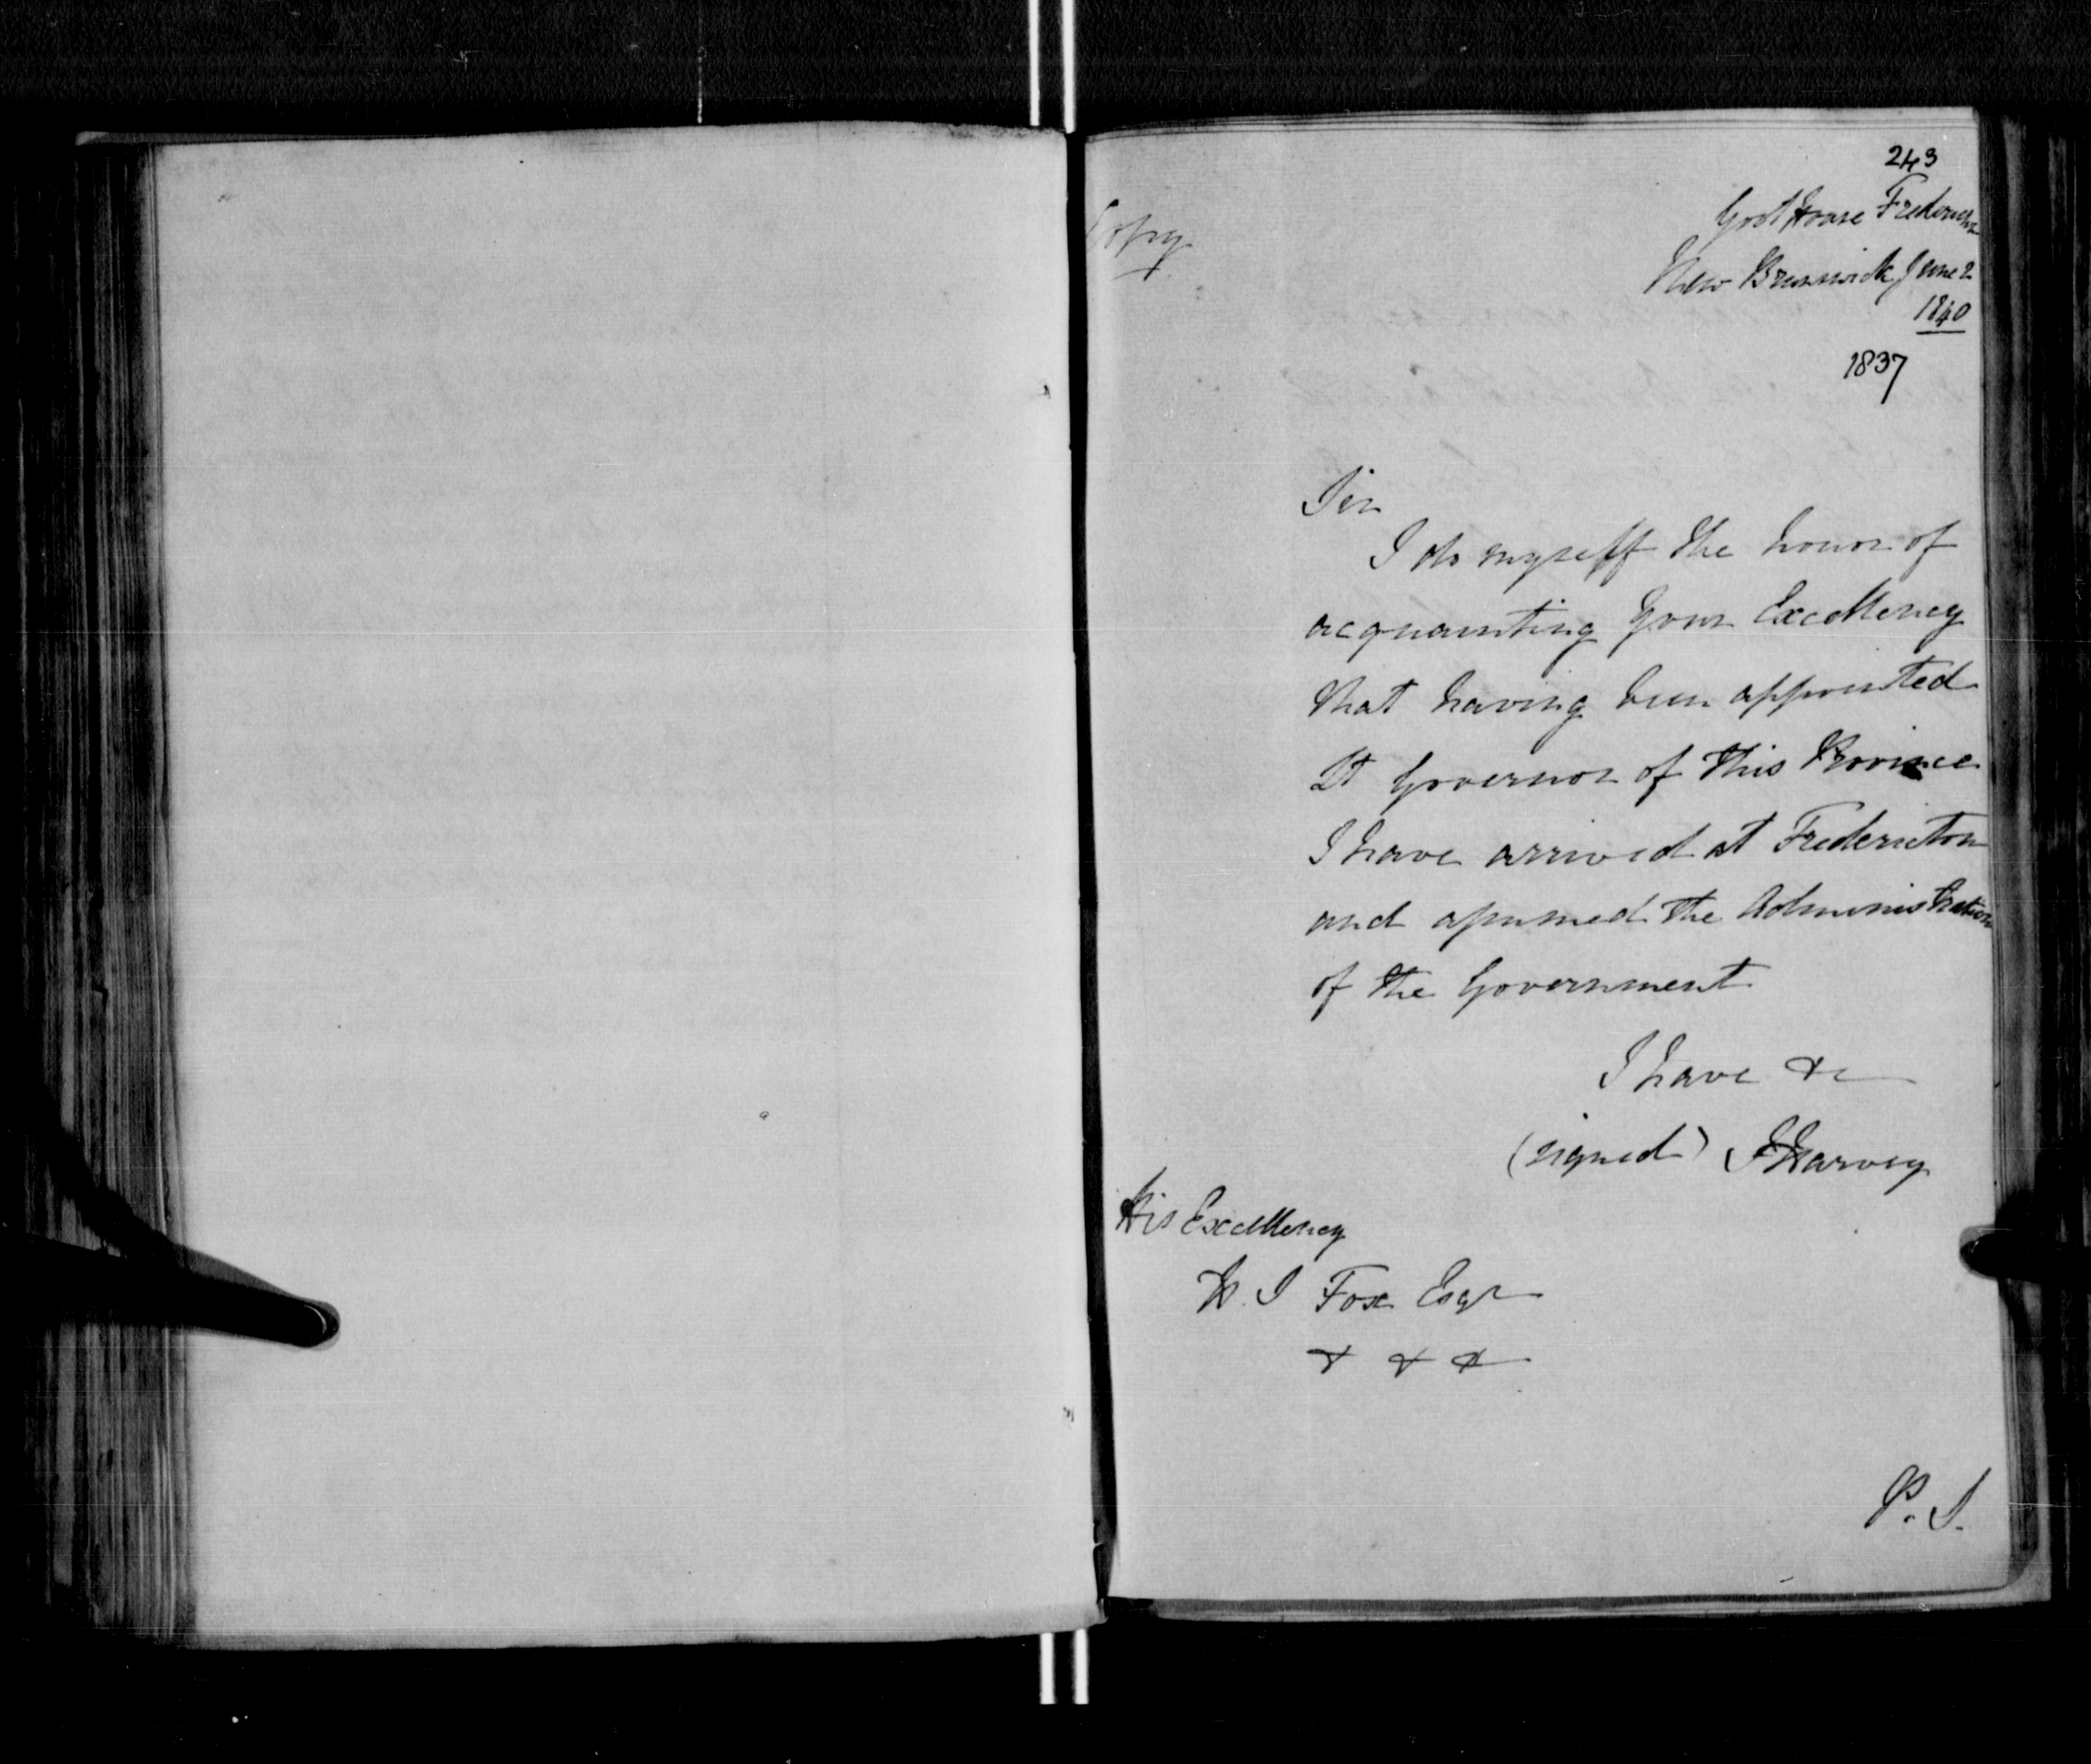 243
Copy
Govt House Fredericton
New Brunswick June 2
1840
1837
Sir
I do myself the honor of
acquainting your Excellency
that having been appointed
Lt Governor of this Province
I have arrived at Fredericton
and assumed the Administration
of the Government
I have &c
(signed) J Harvey
His Excellency
H. S Fox Esqr
& & &
P. S.